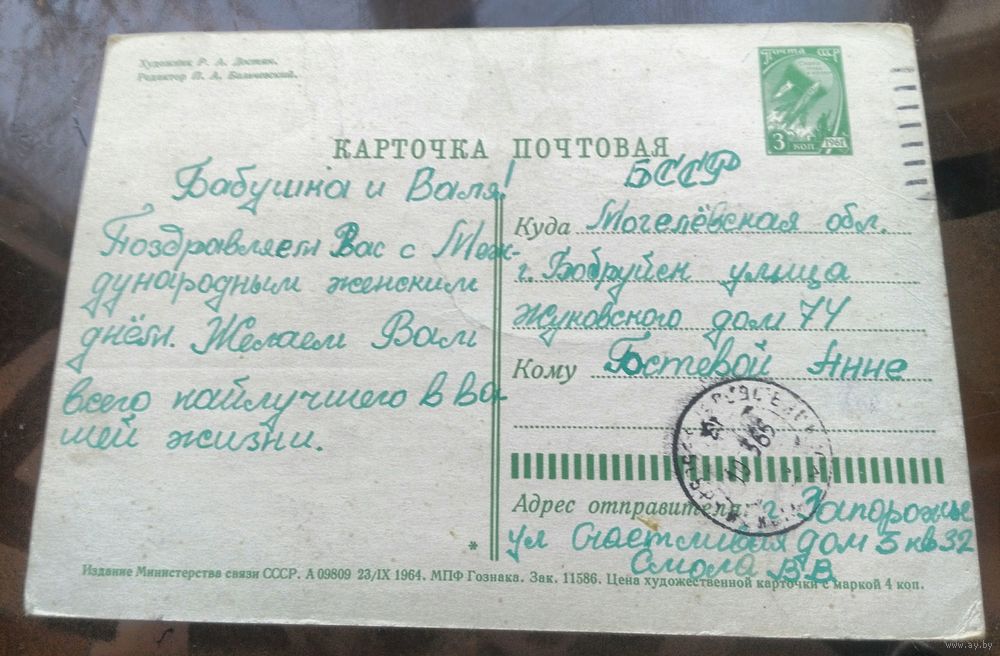 Художник Р. А.
Редактор П. А.
Почта СССР
3 коп. 1961
КАРТОЧКА ПОЧТОВАЯ
Бабушка и Валя!
Поздравляем Вас с Меж-
дународным женским
днём. Желаем Вам
всего наилучшего в ва-
шей жизни.
БССР
Куда Могелёвская обл.
г. Бобруйск улица
Жуковского дом 74
Кому Гостевой Анне
Адрес отправителя: г. Запорожье
ул Счастливая дом 5 кв 32
Смола В В
*
Издание Министерства связи СССР. А 09809 23/IX 1964. МПФ Гознака. Зак. 11586. Цена художественной карточки с маркой 4 коп.
www.ay.by